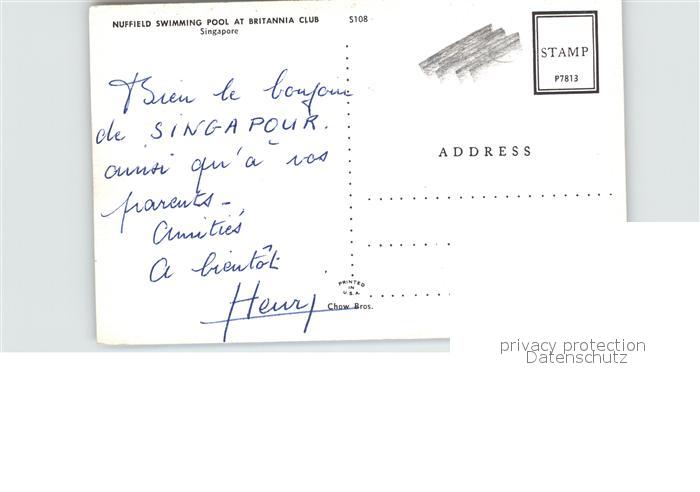 NUFFIELD SWIMMING POOL AT BRITANNIA CLUB S108
Singapore
STAMP
P7813
Bien le bonjour
de SINGAPOUR.
ainsi qu'à vos
parents -
Amitiés
A bientôt
Henry
ADDRESS
PRINTED
IN
U.S.A.
Chow Bros.
privacy protection
Datenschutz